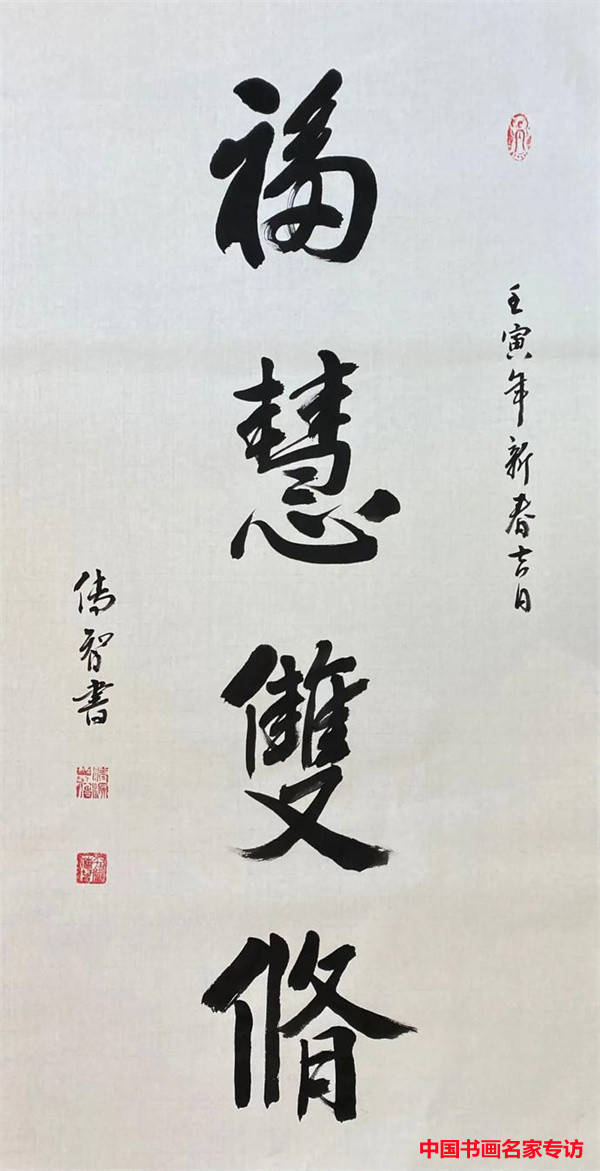 壬寅年新春吉日
福慧雙脩
傳智書
中国书画名家专访